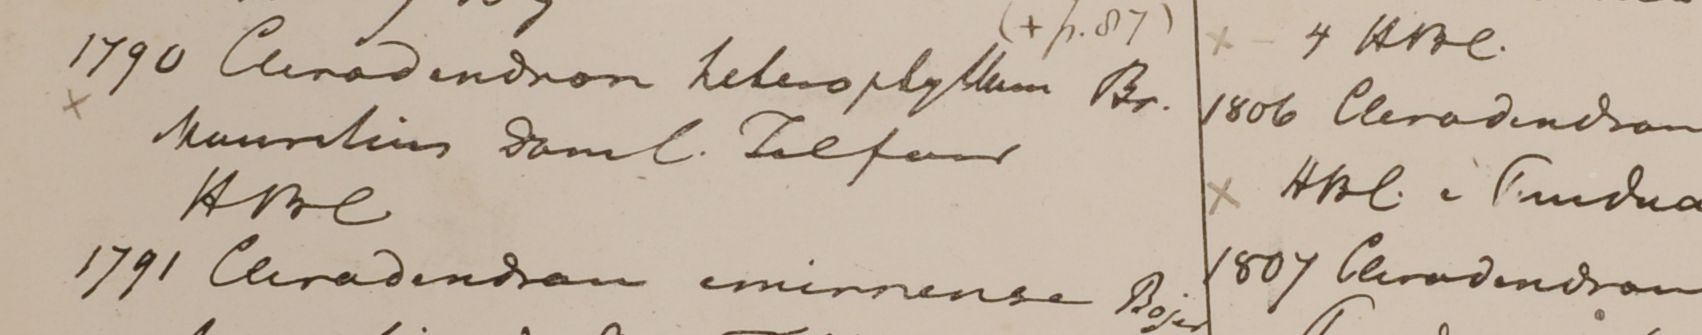 (+ p. 87)
1790 Clerodendron heterophyllum Br.
Mauritius Dom C. Telfair
HBC
1791 Clerodendron emirnense Bojer
4 HBC.
1806 Clerodendron
HBC. e
1807 Clerodendron